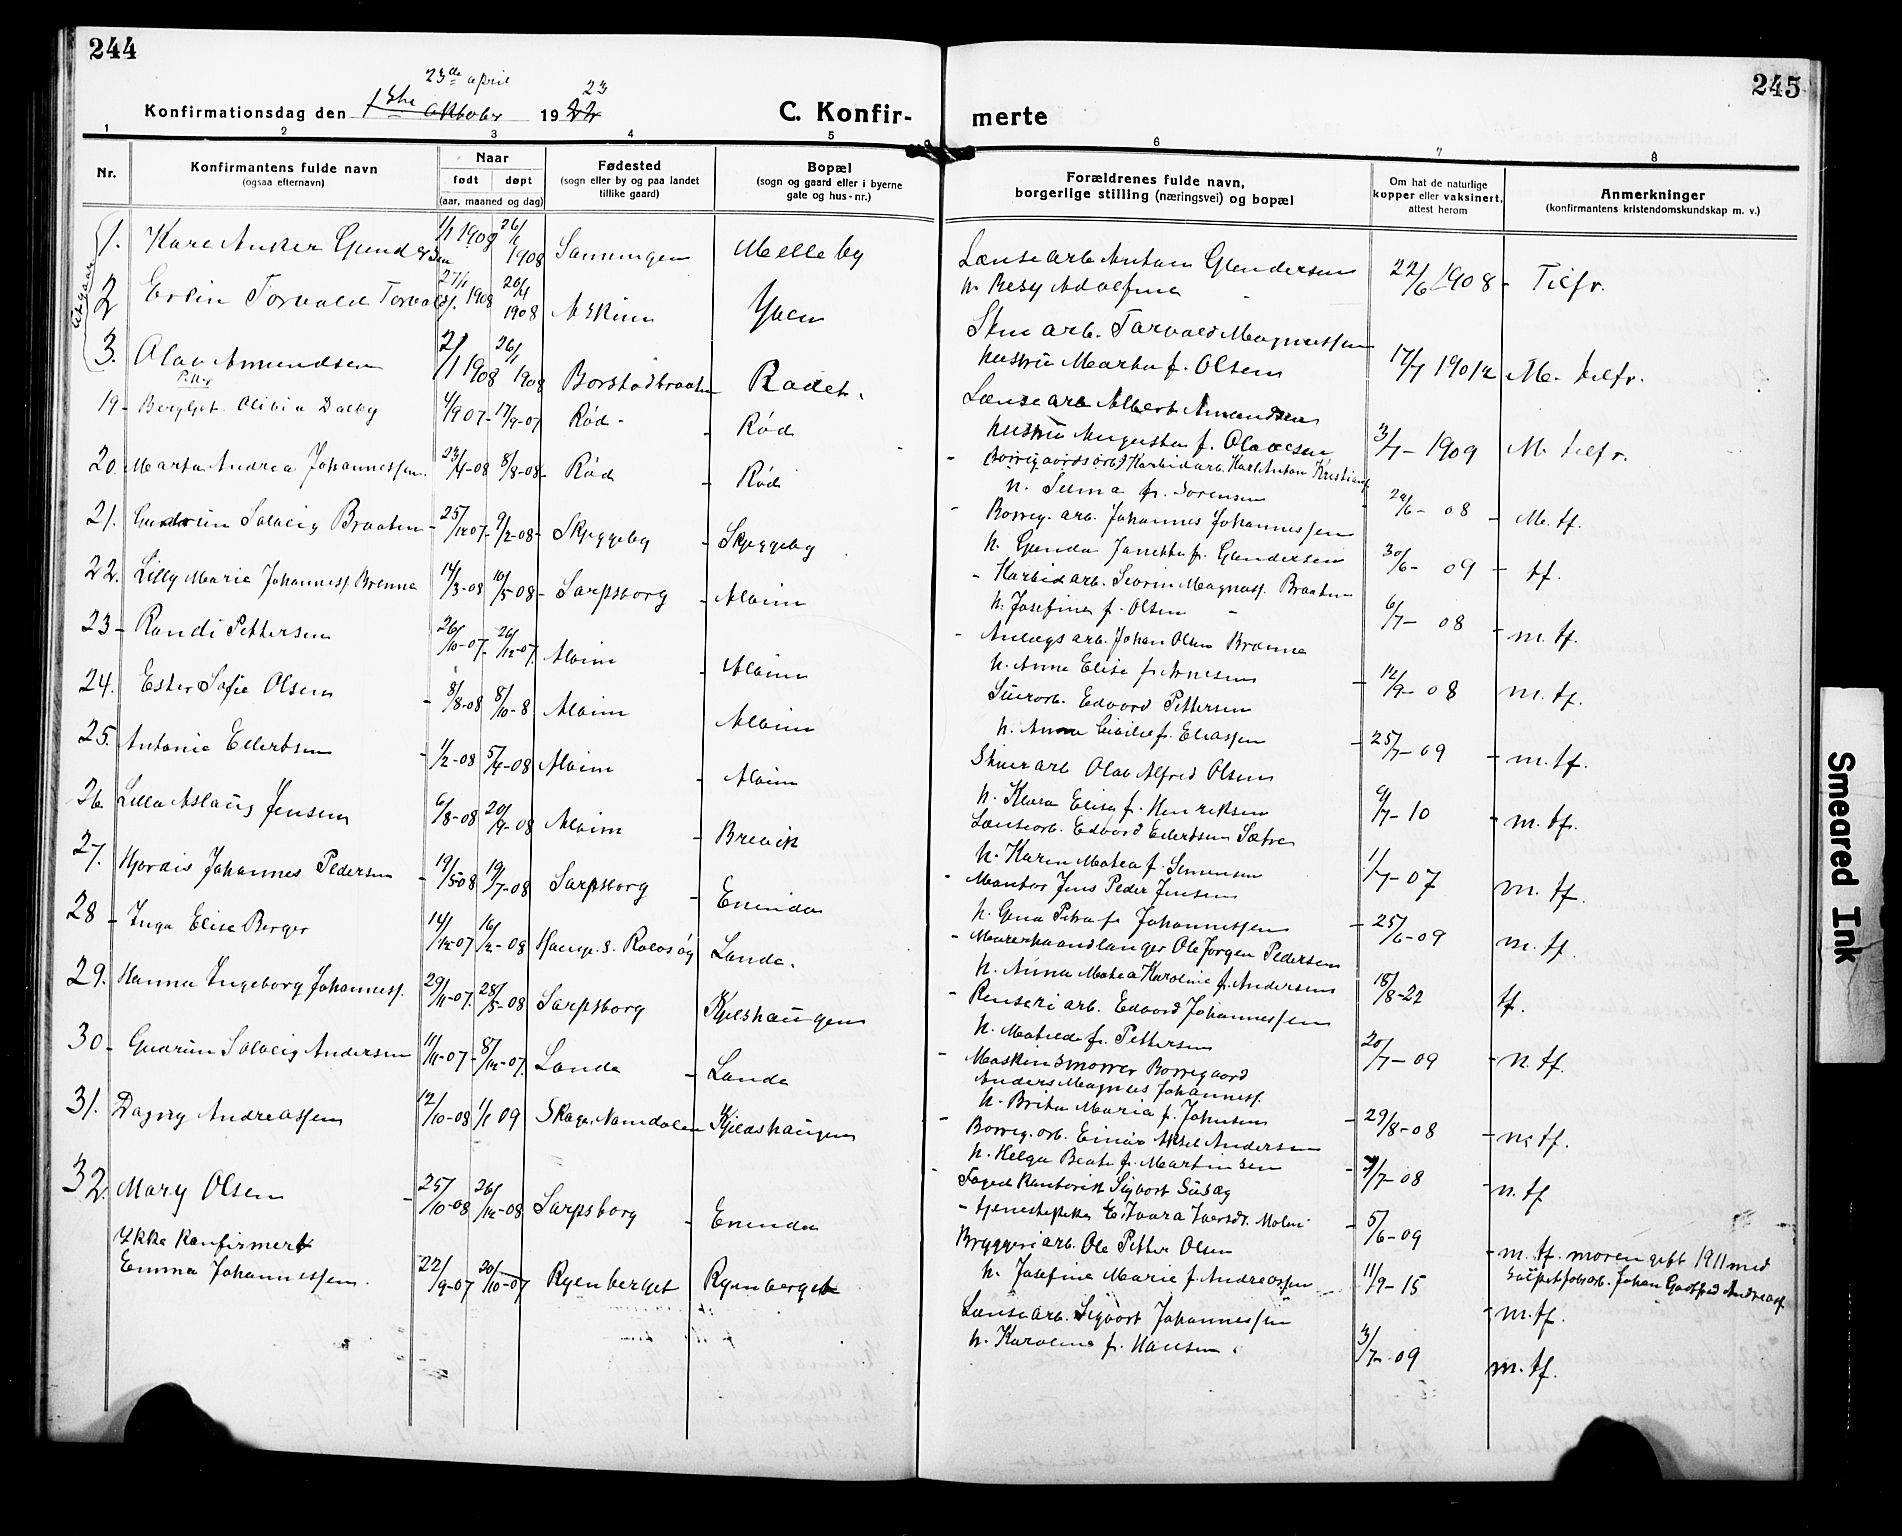 244
245
23de april
Konfirmationsdag den 1ste oktober 1922 23
C. Konfir-
merte
1 2 3 4 5 6 7 8
Nr.
Konfirmantens fulde navn
(ogsaa efternavn)
Naar
født døpt
(aar, maaned og dag)
Fødested
(sogn eller by og paa landet
tillike gaard)
Bopæl
(sogn og gaard eller i byerne
gate og hus-nr.)
Forældrenes fulde navn,
borgerlige stilling (næringsvei) og bopæl
Om hat de naturlige
kopper eller vaksinert,
attest herom
Anmerkninger
(konfirmantens kristendomskundskap m. v.)
Utgaar
1. Kare Anker 1/1 1908 26/1 1908 Melleby
Lænsearb Anton Gundersen 22/6 1908 - Tilfr.
2 Torvald 1908 26/4 1908 Askim Yven
arb. Torvald Magnussen
hustru Marta f. Olsen 17/7 M. tilfr.
3. Olav Amundsen 2/1 1908 26/1 1908 Borstadbraaten Rødet.
Lænsearb Albert Amundsen
hustru Augusta f. Olavesen 3/7 - 1909 M. tilfr.
19 - Bergljot Olivia Dalby 4/9 07 - 17/9-07 Rød - Rød
Borregaardsarb Karbidarb. Karl Anton Kristians
h. f. Sorensen 08 - M. tf.
20. Marta Andrea Johannessen. 23/4-08 8/8-08 Rød - Rød
Borreg. arb. Johannes Johannessen
h. Gunda f. Gundersen 30/6 - 09 - tf.
21. Gudrun Solveig Braaten - 25/12 07 - 9/2-08 - Skjeggeby - Skjeggeby
- Karbidarb. Severin Magnuss. Braaten
h. Josefine f. Olsen 6/7 - 08 - m. tf.
22. Lilly Marie Johanness Brenna 14/3-08 10/5-08 - Sarpsborg - Alvim
- Anlægsarb. Johan Olsen Brenna
h. Anna Elise f. Arnesen - 12/9 - 08 m. tf.
23 - Randi Pettersen 26/10-07 - 26/12-07 Alvim - Alvim
Edvard Pettersen
h. Anna f. Eliassen - 25/7 - 09 - m. tf.
24. Ester Sofie Olsen - 8/8-08 8/10-8 Alvim Alvim
Olav Alfred Olsen
h. Klara Elise f. Henriksen 9/7 - 10 - m. tf.
25. Antonie Edvertsen - 1/2-08 5/4-08 Alvim - Alvim
Lænsearb. Edvard Sætre
h. Karen Matea f. Simensen 1/7 - 07 m. tf.
26 Lilla Aslaug Jensen 6/8-08 20/9-08 Alvim - Brevik
- Montør Jens Peder Jensen
h. Gina Petra f. Johannessen - 25/6-09 m. tf.
27. Hjørdis Johannes Pedersen - 19/5-08 19/7-08 Sarpsborg - Eninda
- Murerhaandlanger Ole Jørgen Pedersen
h. Anna Matea Karoline f. Andersen 18/8-22 tf.
28 - Inga Elise Berger 14/12-07 16/2-08 Landa.
- Renseriarb. Edvard Johannessen
h. Matilde f. Pettersen 20/7 - 09 - m. tf.
29. Hanna Ingeborg Johanness. 29/11-07. 28/5-08 Sarpsborg Kjelshaugen
- Maskinsmører Borregaard
Anders Magnus Johanness.
h. Brita Maria f. Johnsen - 29/8-08 - m. tf.
30 - Gudrun Solveig Andersen 11/11-07 - 8/12-07. Landa - Landa
- Borreg. arb. Einar Aksel Andersen
h. Helga Beate f. Martinsen - 7/7-08 - m. tf
31. Dagny Andreassen 12/10-08 1/1 09 Skage, Namdalen Kjelshaugen
- Sigvart
- tjenestepike - 5/6-09 - m. tf. moren gift 1911 med
arb. Johan Gotfred Andreass.
32. Mary Olsen - 25/10-08 26/12-08 Sarpsborg - Eninda
Bryggeriarb. Ole Petter Olsen
h. Josefine Marie f. Andreassen 11/9-15 - m. tf.
Ikke konfirmert
Emma Johannessen. 22/9-07 20/10-07 Ryenberget Ryenberget
Lænsearb. Sigvart Johannessen
h. Karoline f. Hansen 3/7-09 m. tf.
Smeared Ink